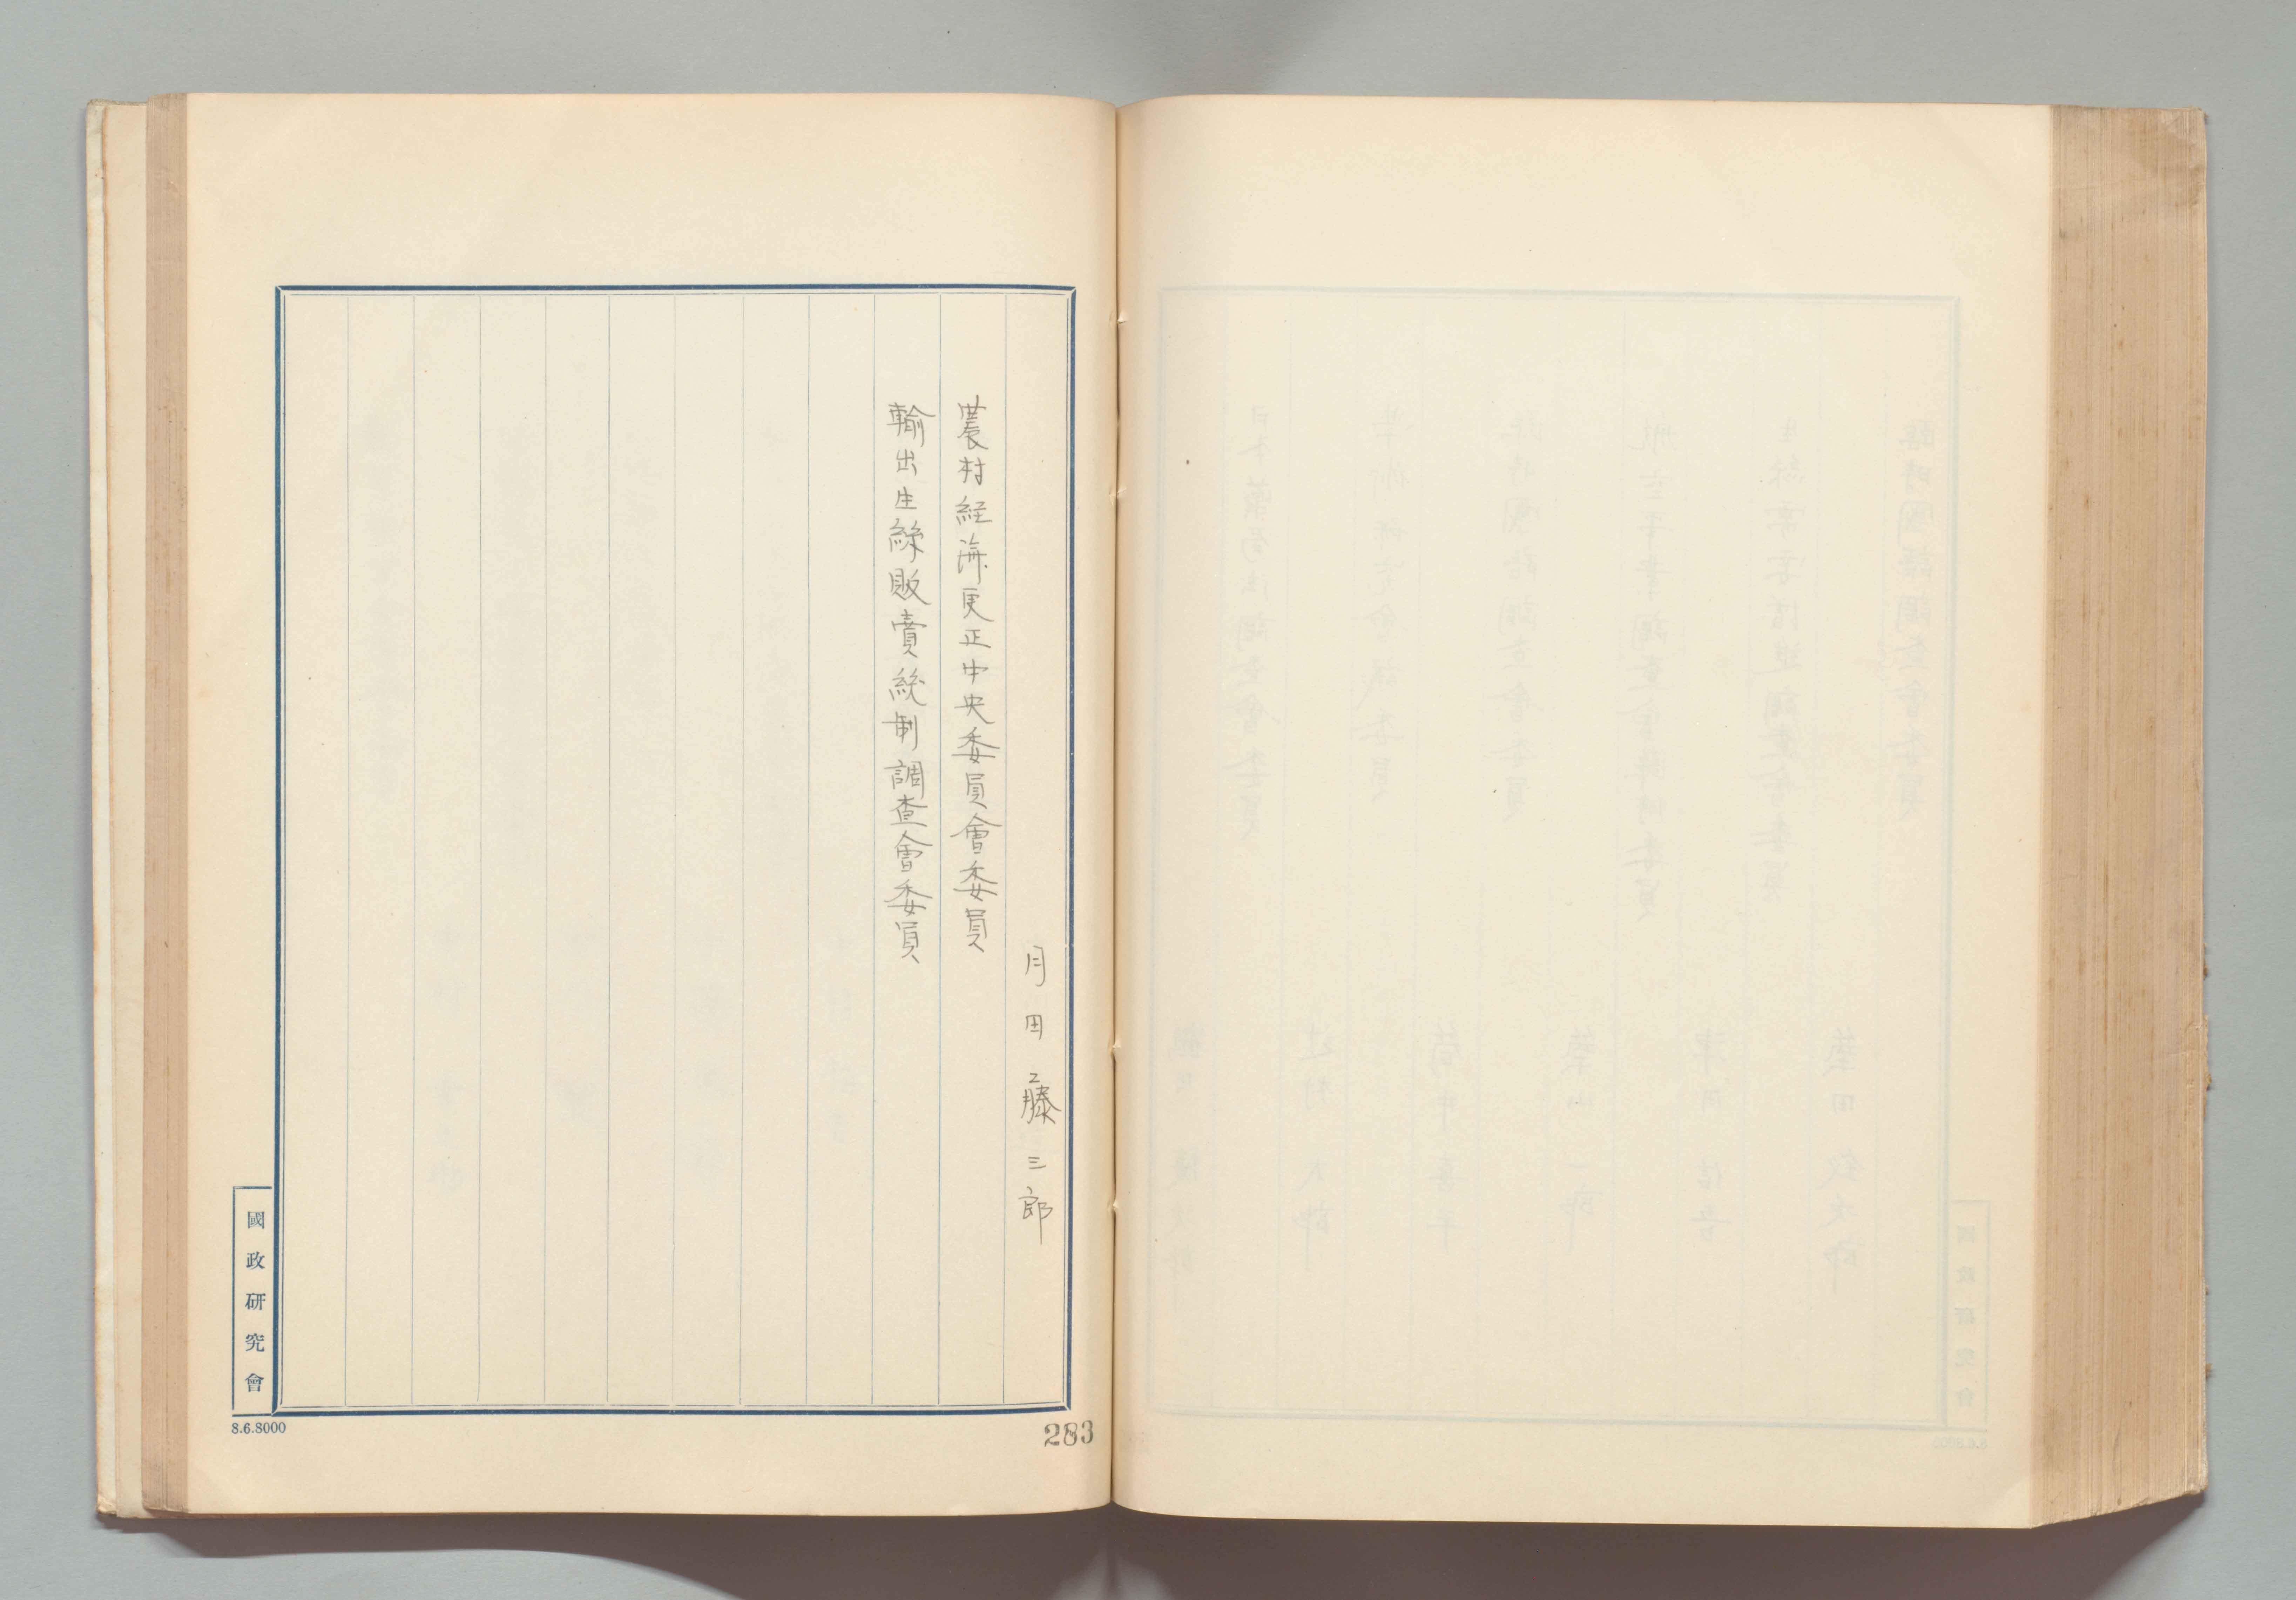 月田藤三郎
農村経済更正中央委員會委員
輸出生絲販賣統制調査會委員
國政研究會
8.6.8000
283